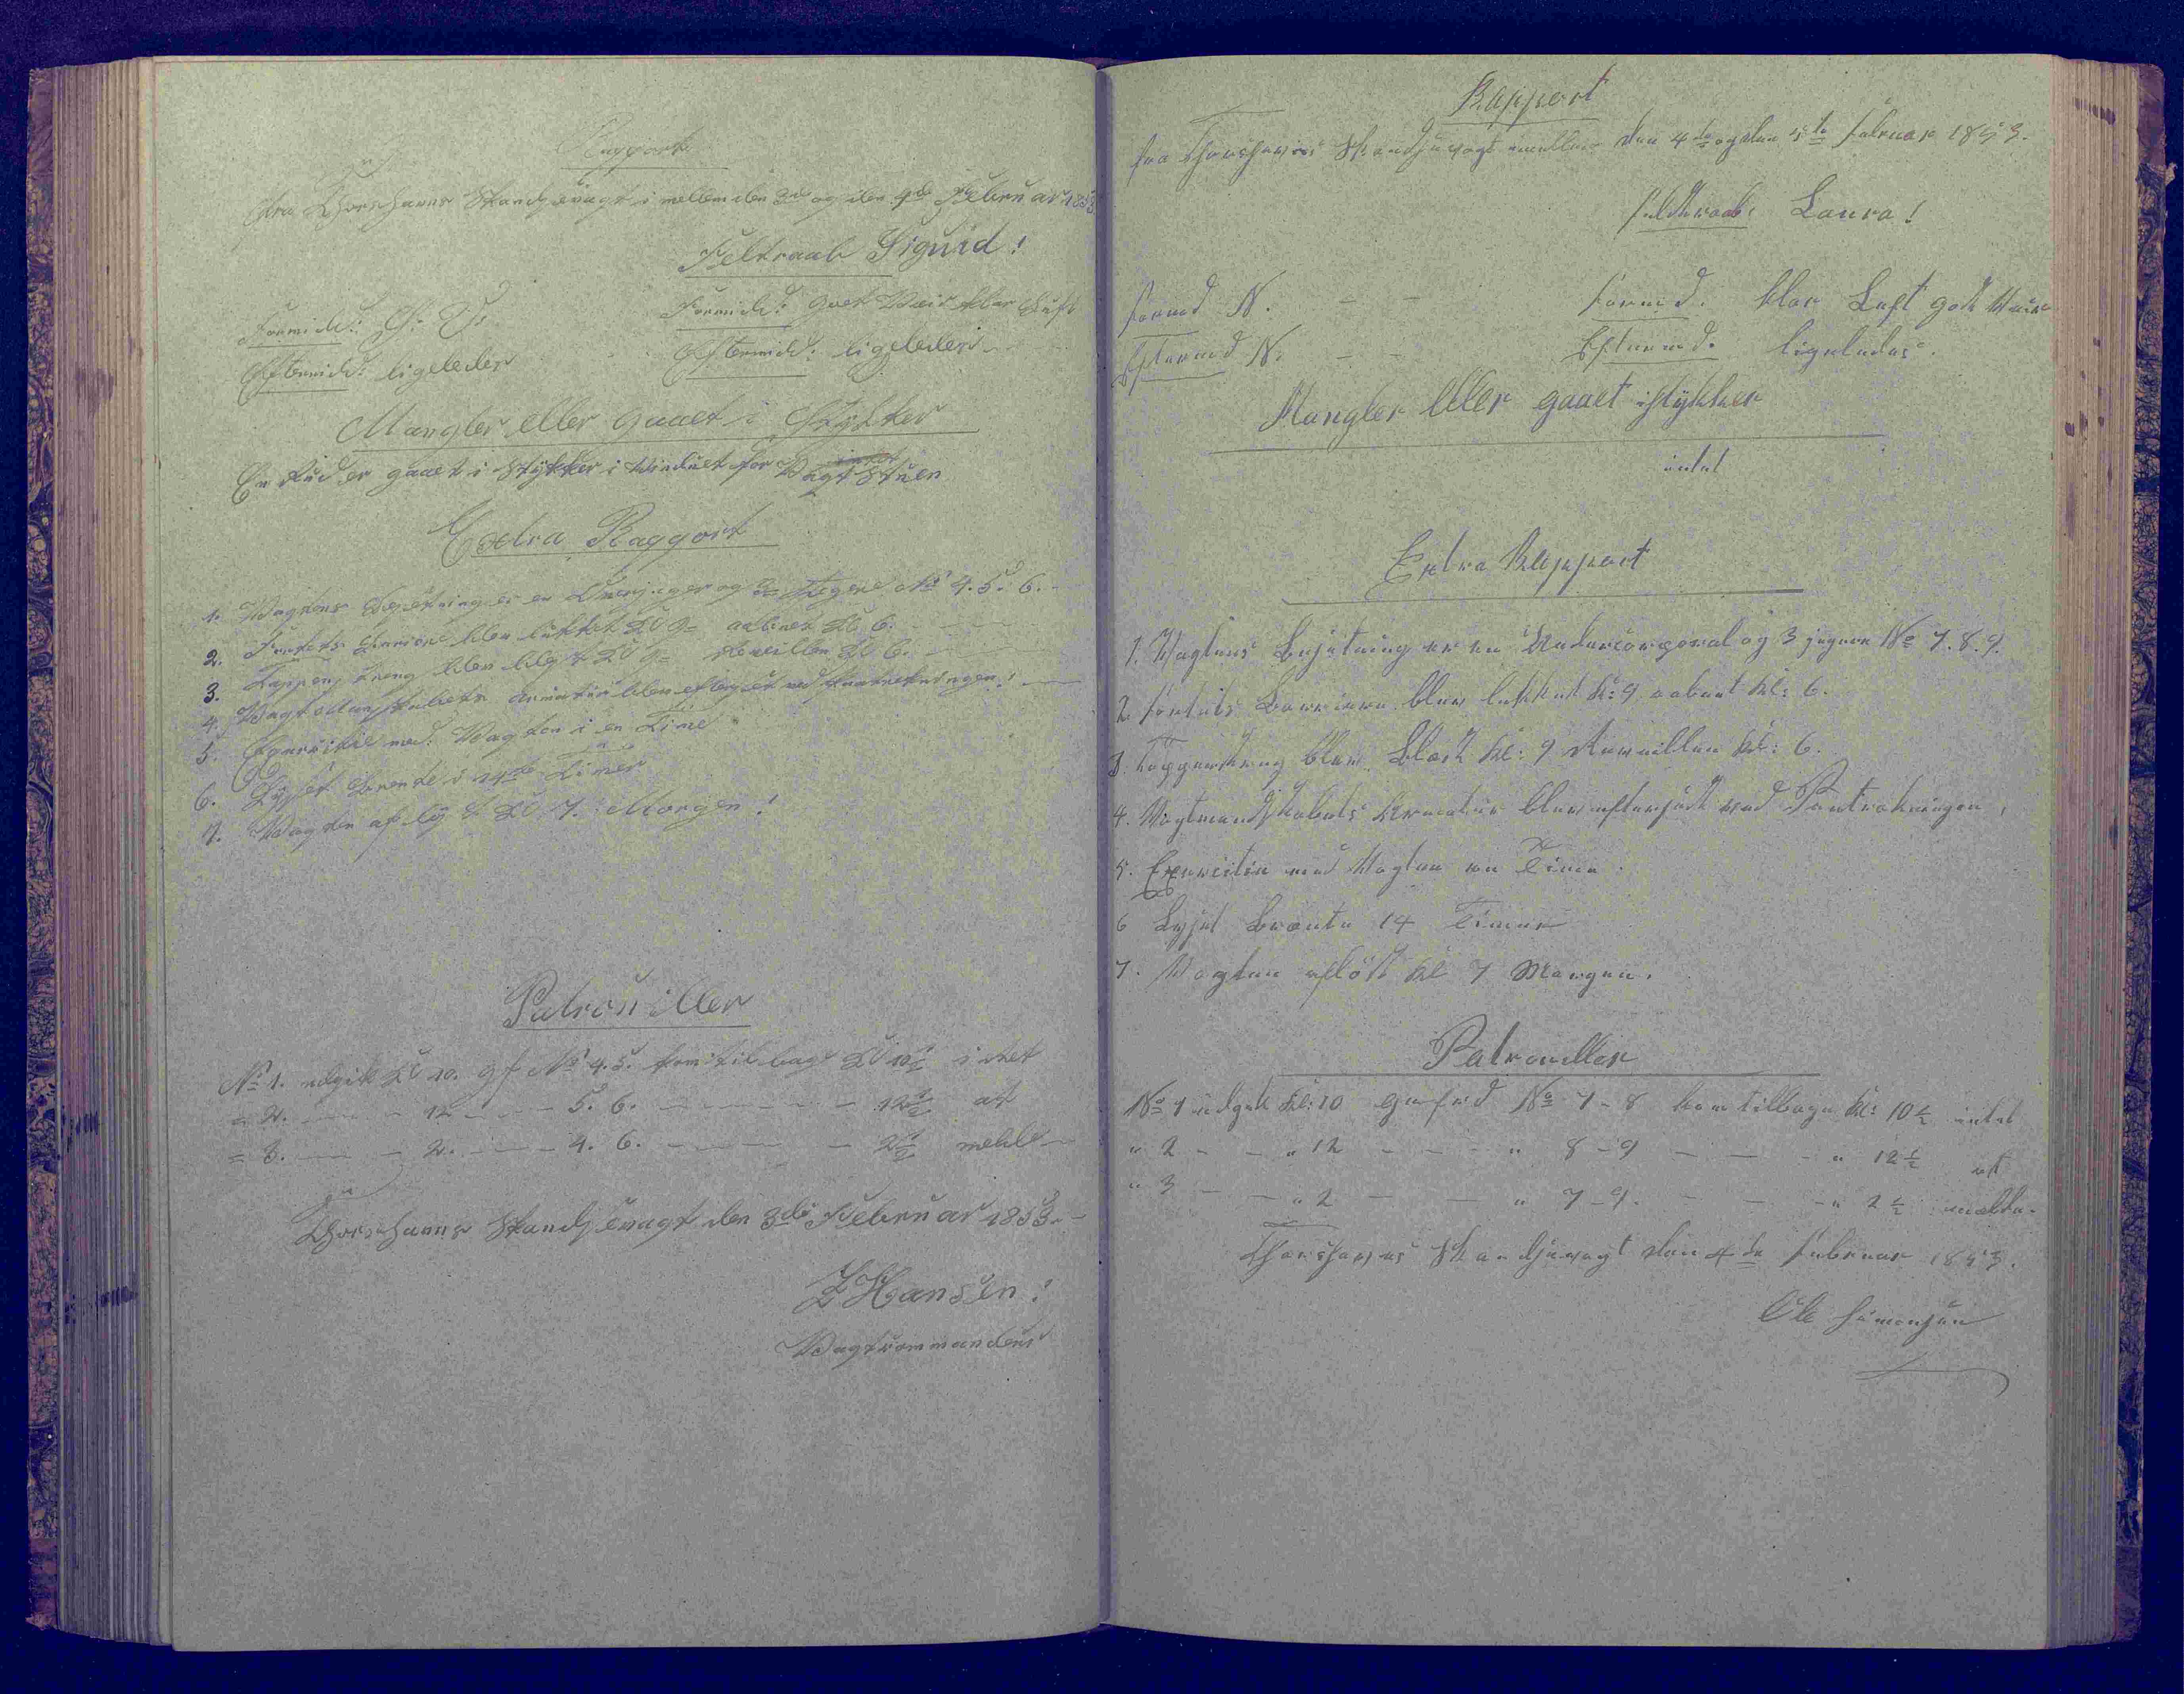 Rapport
fra Thorshavns Skandsevagt i mellem den 3de og den 4de Februar 1853
Feltraab Siguid!
Formidd: Ø: S: Formidd: godt Veir klar Luft
Eftermidd: ligeledes Eftermidd: ligeledes
Mangler eller gaaet i Stykker
intet
En Rud er gaaet i Stykker i Vinduet for Vagtstuen
Extra Rapport
1. Vagtens Besætning er en og 3 Jægere No 4. 5. 6.
2. Fortets Barriere blev lukket Kl 9 aabnet Kl 6.
3. Tappenstreng blev Kl 9 Reveillen Kl 6.
4. Vagtmandskabets Armatur blev efterset ved Fratrædningen!
5. Exercitie med Vagten i en Time
6. Lyset brente i 14 Timer
7. Vagten afløst Kl 7. Morgen!
Patrouiller
No 1. udgik Kl 10. gf No 4. 5. kom tilbage Kl 10½ intet
= 2. — - 12 - - - 5. 6. — - 12½ at
= 3. — - 2. - - - 4. 6. — - 2½ melde
Thorshavns Skandsevagt den 3de Februar 1853.
Z Hansen!
Vagtcommandeur
Rapport
fra Thorshavns Skandsevagt imellem den 4de og den 5te Februar 1853.
Feldtraab: Laura!
Formd N. - - Formd. klar Luft godt Veir
Eftermd N. - - Eftermd. ligeledes.
Mangler eller gaaet istykker
intet
Extra Rapport
1. Vagtens Besætning er en Undercorporal og 3 jægere No 7. 8. 9.
2. Fortets Barriere blev lukket kl: 9 aabnet kl: 6.
3. Tappenstreg blev blæst kl: 9 Reveillen kl: 6.
4. Vagtmandskabets Armatur blev efterseet ved Fratrædningen,
5. Exercitie med Vagten en Time.
6 Lyset brænte 14 Timer
7. Vagten afløst kl 7 Morgen.
Patrouiller
No 1 udgik kl: 10 gefrd No 7-8 kom tilbage kl: 10½ intet
" 2 - - " 12 - - - " 8-9 - - - " 12½ at
" 3 - - " 2 - - " 7-9. - - - " 2½ melde.
Thorshavns Skandsevagt den 4de Februar 1853.
Ole Simonsen